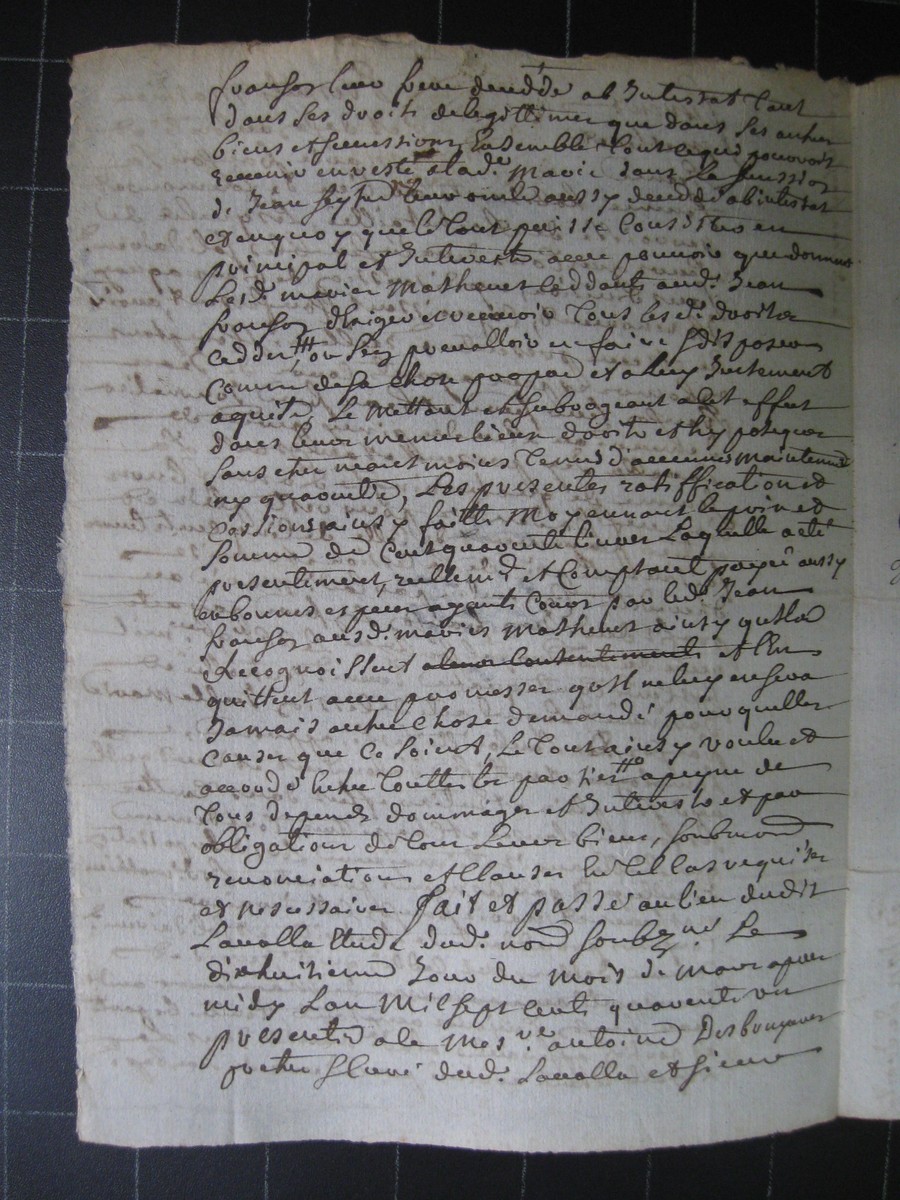 françois leur frere deceddé ab Intestat tant
dans ses droits de legittimer que dans ses autres
biens et successions Ensemble tout ce qui pouvoit
revenir en reste a lad.e Marie dans la sucession
de Jean seytre leur oncle aussy deceddé ab intestat
et en quoy que le tout puisse Consister en
principal et Interests avec pouvoir que donnent
Lesd. mariés Mathenet Ceddants aud. Jean
françois d'Exiger et recevoir tous lesd. droits
cedder, sen prevalloir en faire & disposer
Comme de sa chose propre et a luy Justement
aquise, Le Mettant et subrogeant a cet effet
dans leur même lieux droits et hypoteques
sans etre neant moins tenus d'aucune maintenue
ny guarentie, Les presentes ratiffication et
cessions ainsy faitte Moyennant le prix et
somme de Cent quarente livres Laquelle a eté
presentement, reellem.t et Comptant payée aussy
en bonnes especes ayants Cours par led. Jean
françois ausd. mariés Mathenet ainsy qu'ils
Recognoissent a leur Contentement et l'en
quittent avec promesses qu'il ne luy en sera
Jamais autre chose demandé pour quelles
causes que ce soient, Le tout ainsy voulu et
accordé entre touttes les parties a peyne de
tous depends dommages et Interests et par
obligations de tous Leurs biens, soubmons
renonciations et Clauses En tel cas requises
et necessaires fait et passé au lieu dudit
Lavalla Etude dud. no.re soubz.né Le
dixhuitieme Jour du mois de Mars apres
midy L'an Mil sept cents quarente un
presents a ce Mes.re antoine Desbruyeres
pretre & Curé dud. Lavalla et sieur